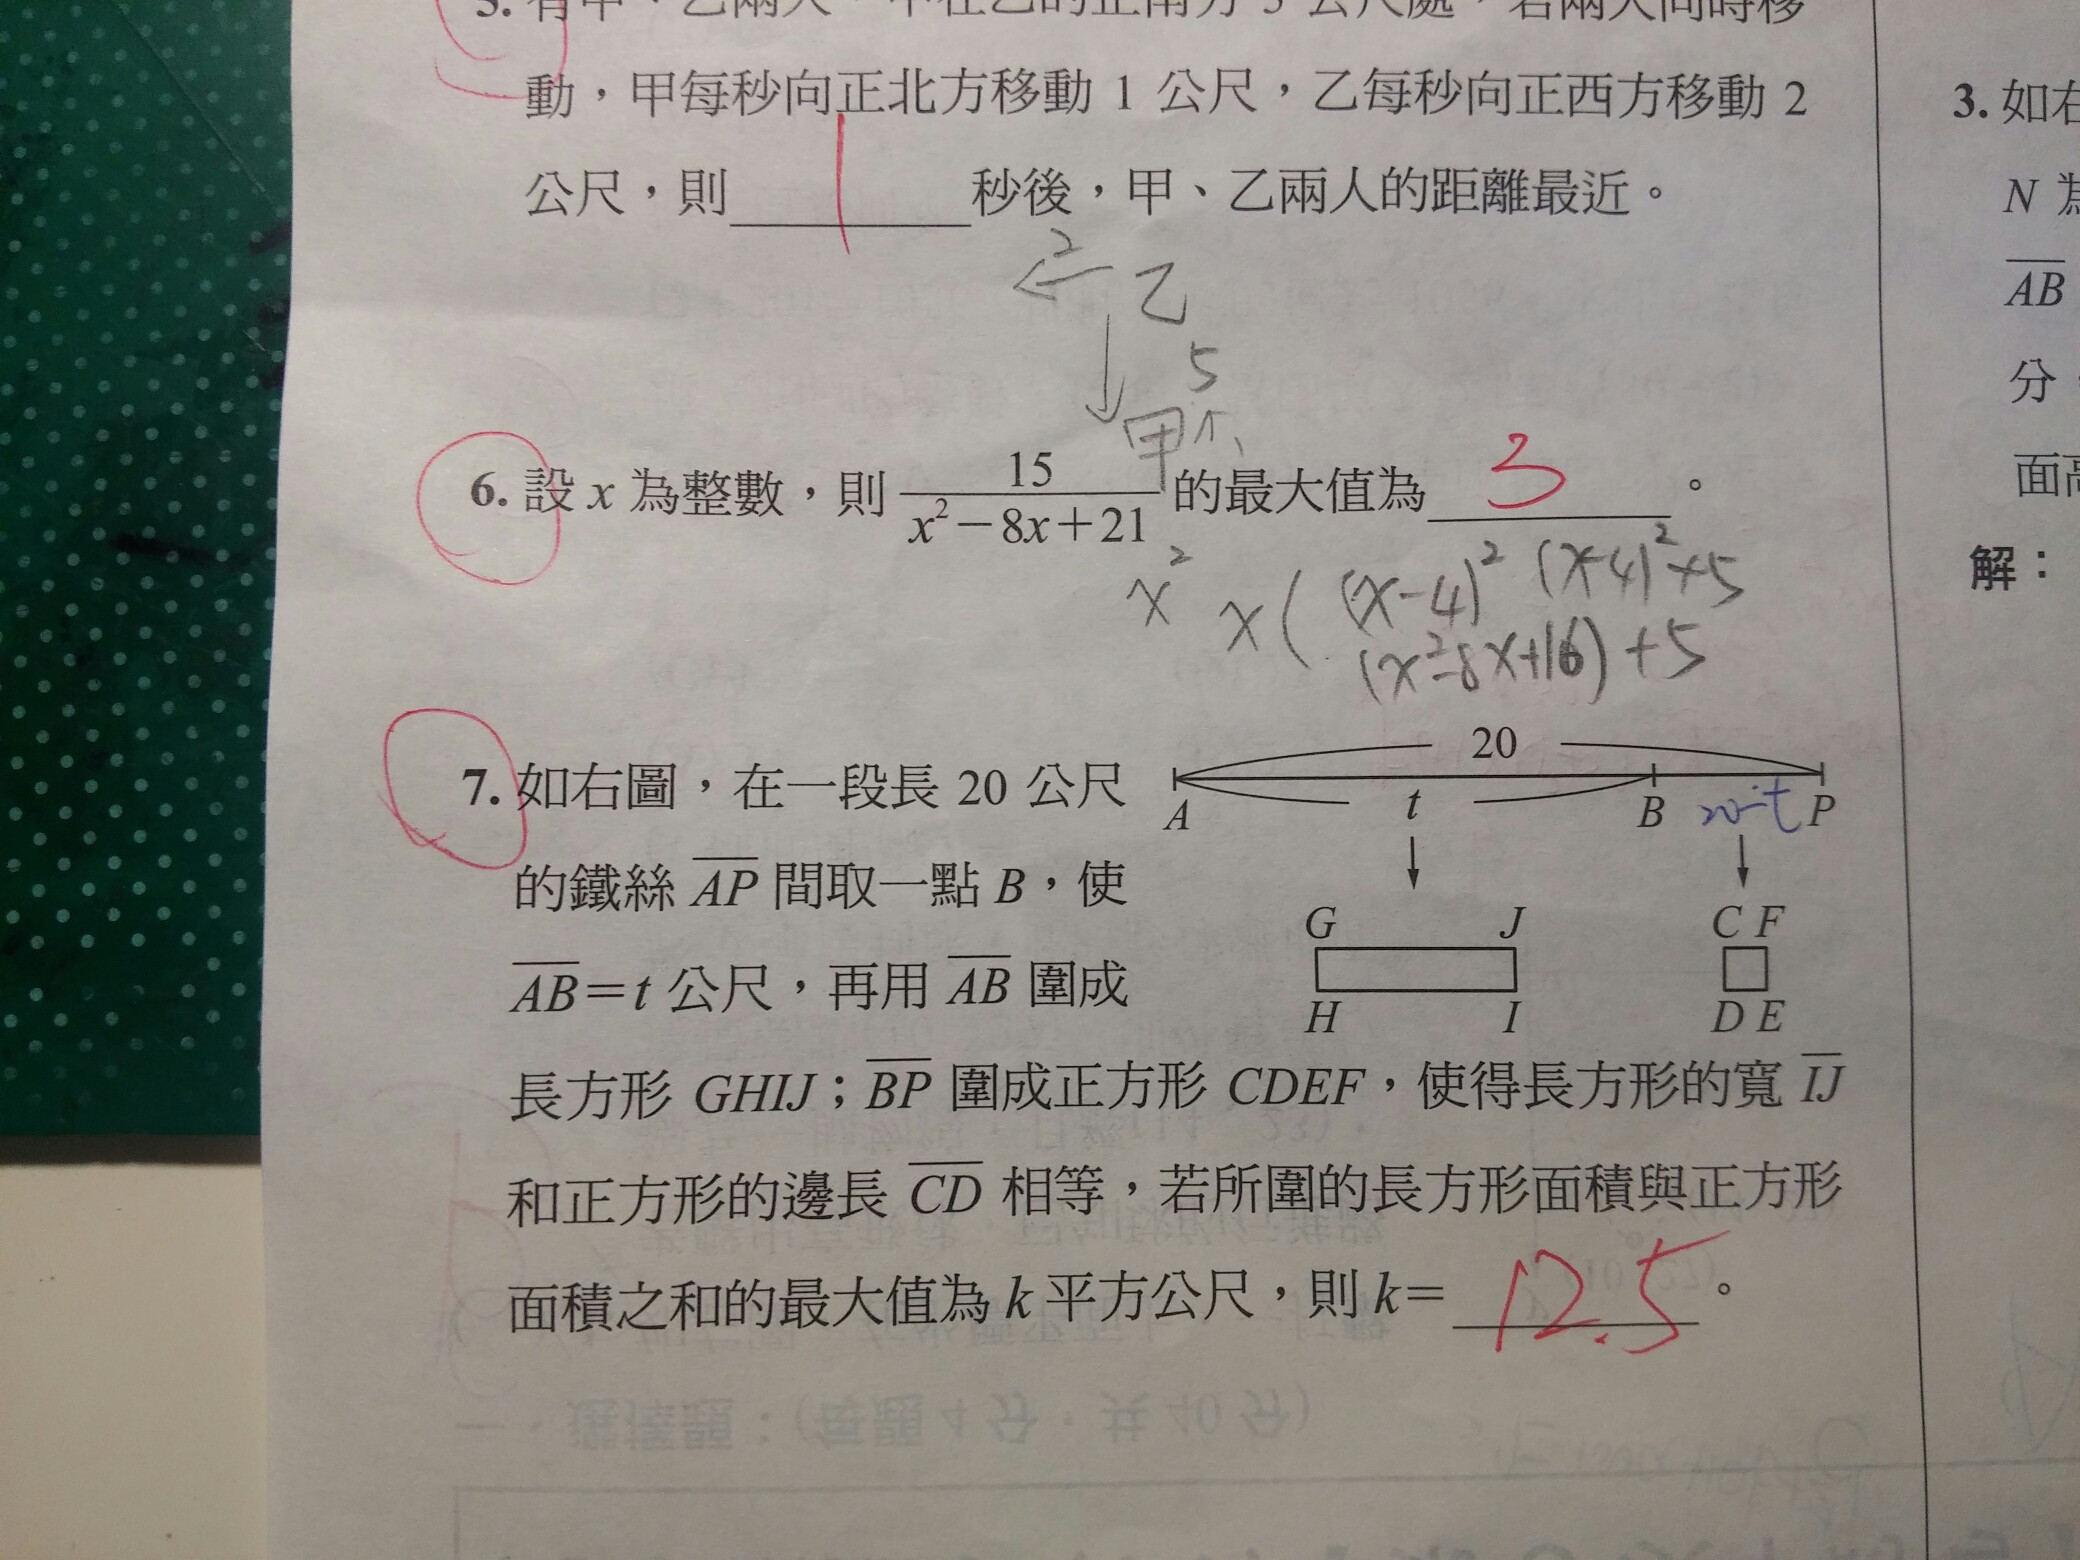 5. 有甲、乙兩人，甲在乙的正南方 5 公尺處，若兩人同時移
動，甲每秒向正北方移動 1 公尺，乙每秒向正西方移動 2
公尺，則 1 秒後，甲、乙兩人的距離最近。
2
← 乙
5
甲
6. 設 x 為整數，則 15/(x²－8x＋21) 的最大值為 3 。
x² x( (x-4)² (x-4)²+5
(x²-8x+16)+5
7. 如右圖，在一段長 20 公尺
的鐵絲 AP 間取一點 B，使
AB＝t 公尺，再用 AB 圍成
長方形 GHIJ；BP 圍成正方形 CDEF，使得長方形的寬 IJ
和正方形的邊長 CD 相等，若所圍的長方形面積與正方形
面積之和的最大值為 k 平方公尺，則 k＝ 12.5 。
20
A t B 20-t P
G J C F
H I D E
3. 如右
N 為
AB
分，
面高
解：
一、選擇題：(每題 4 分，共 40 分)